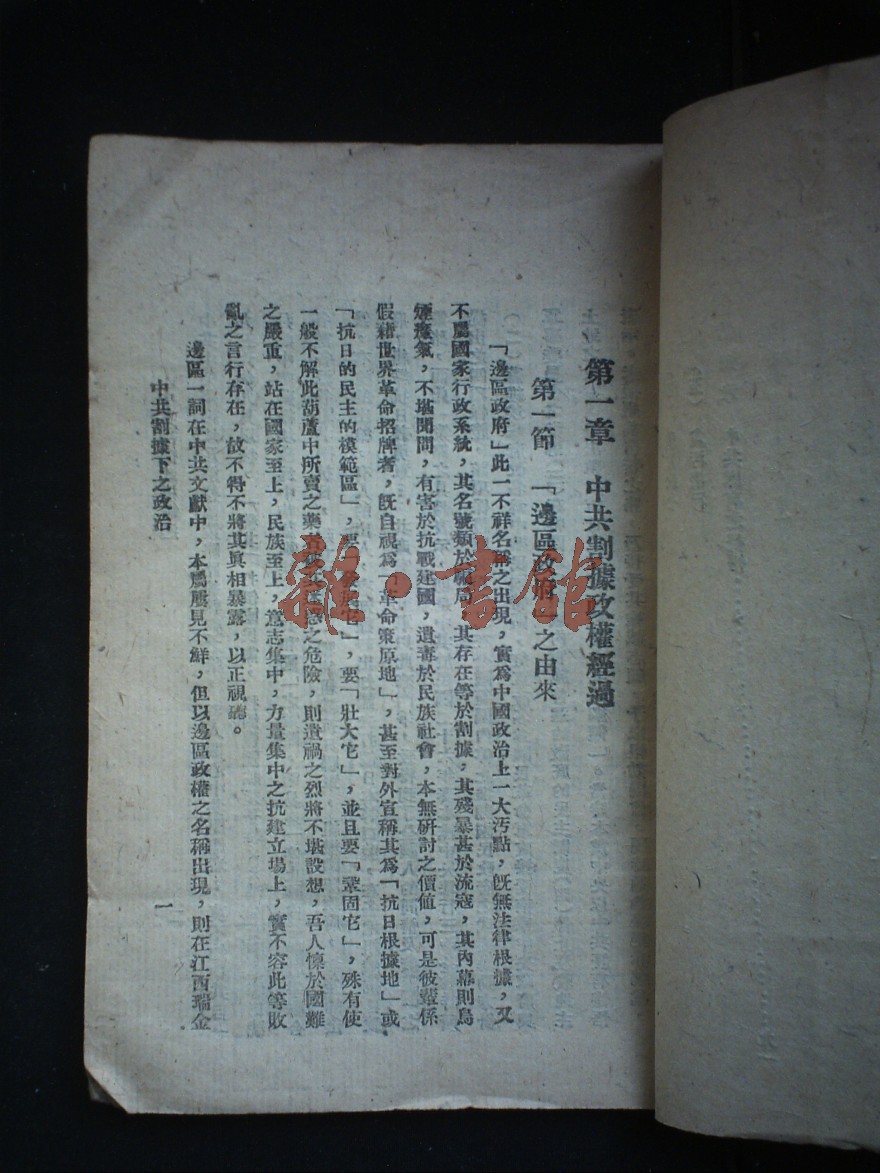 第一章　中共割據政權經過
第一節　「邊區政府」之由來
「邊區政府」此一不祥名稱之出現，實爲中國政治上一大污點，既無法律根據，又
不屬國家行政系統，其名號類於 局，其存在等於割據，其殘暴甚於流寇，其內幕則烏
煙瘴氣，不堪聞問，有害於抗戰建國，遺毒於民族社會，本無研討之價値，可是彼輩係
假藉世界革命招牌者，既自視爲「革命策原地」，甚至對外宣稱其爲「抗日根據地」或
「抗日的民主的模範區」，要「發展它」，要「壯大它」，並且要「鞏固它」，殊有使
一般不解此葫蘆中所賣之藥者 之危險，則遺禍之烈將不堪設想，吾人懍於國難
之嚴重，站在國家至上，民族至上，意志集中，力量集中之抗建立場上，實不容此等敗
亂之言行存在，故不得不將其眞相暴露，以正視聽。
邊區一詞在中共文獻中，本屬屢見不鮮，但以邊區政權之名稱出現，則在江西瑞金
中共割據下之政治
一
雜·書館